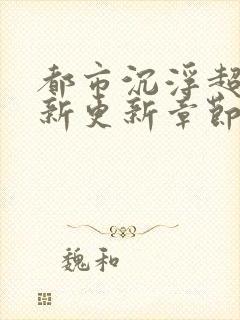 都市沉浮超
新更新章節
魏和